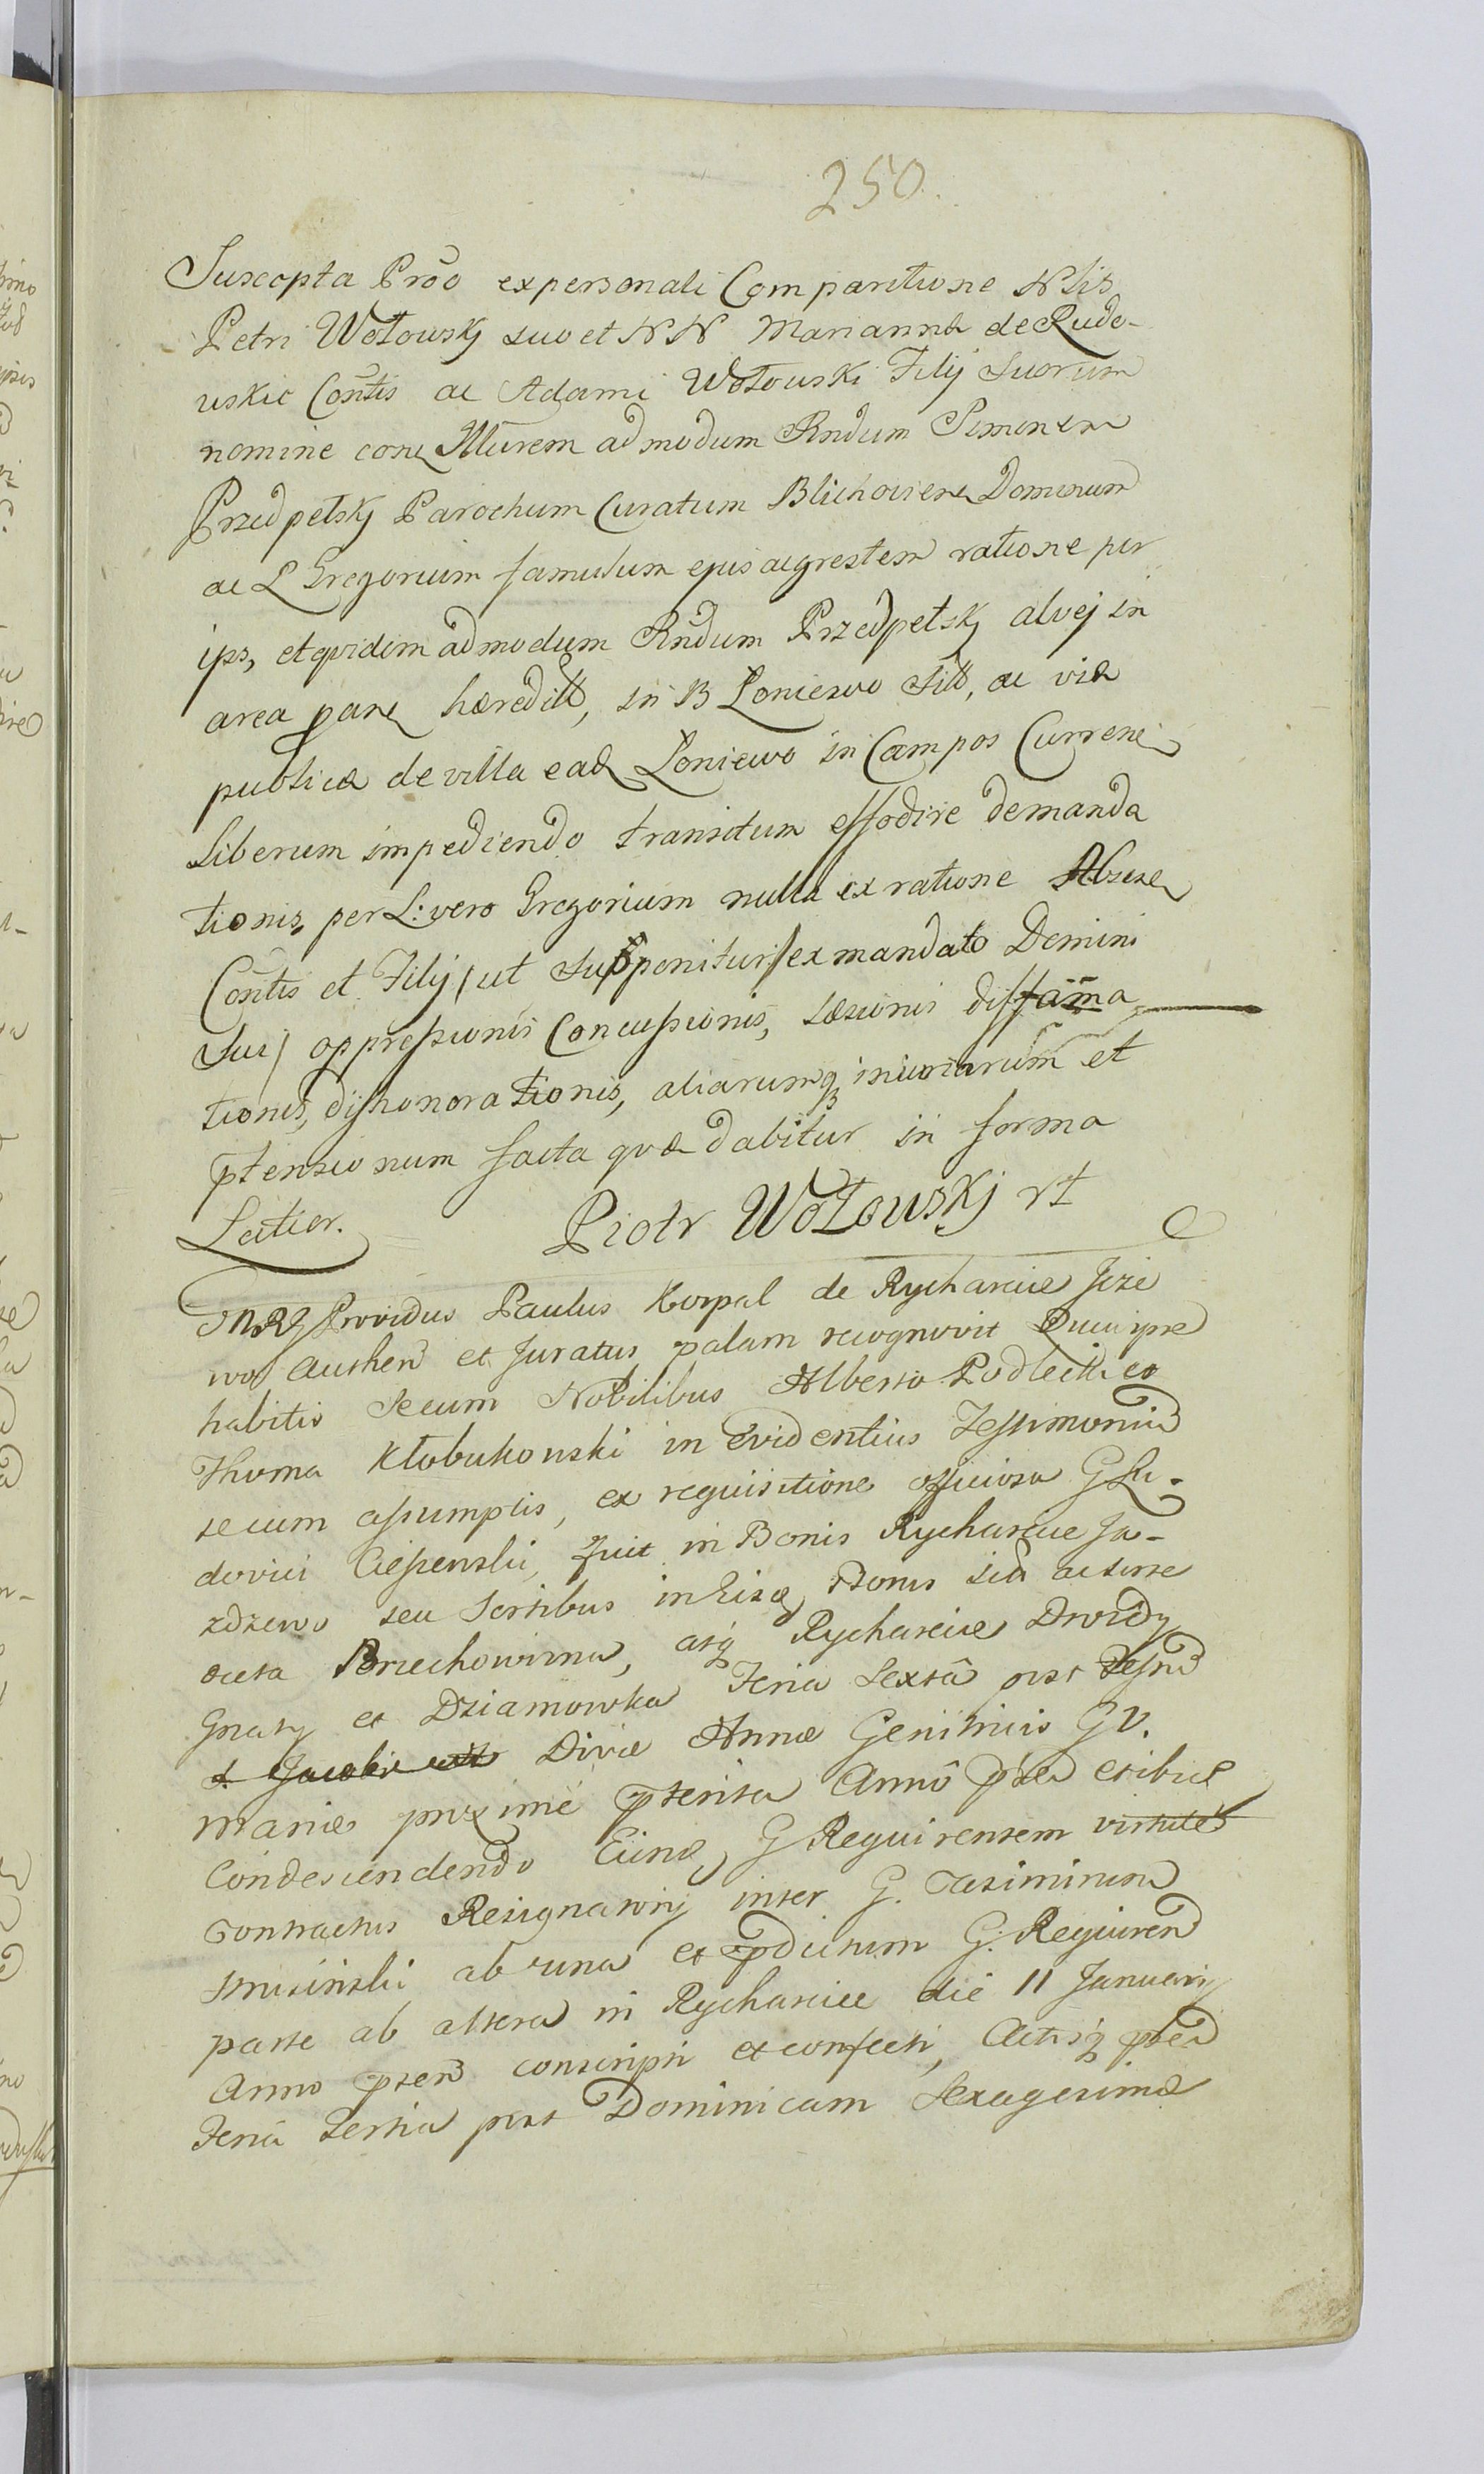 250.
Suscepta Prõõ ex personali Comparitione Nlis
Petri Wołowskj suo et NN Mariannæ de Rudo-
uskie Cõntis ac Adami Wołouski Filij Suorum
nomine cone Illũrem admodum Rndum Simonem
Przedpełskj Parochum Curatum Blichoviens Dominum
ac L Gregorium famulum ejus agrestem ratione per
ips, et qvidem admodum Rndum Przedpełskj alvej in
area pane hæreditt, in B Łoniewo Sitt, ac viæ
publicæ de villa ead Łoniewo in Campos Curren
Liberum impediendo transitum effodire demanda
tionis, per L: vero Gregorium nulla ex ratione
Cõntis et Filij / ut Supponitur / ex mandato Domini
Sui / oppressionis Concussionis, læsionis diffãma
tionis, dishonorationis, aliarumq iniuriarum et
ptensionum facta qvæ dabitur in forma
Latior. Piotr Wołowskj rt
Providus Paulus Korpal de Rycharcice Jeze
wo authen et Juratus palam recognovit Quia ipse
habitis Secum Nobilibus Alberto Podlecki et
Thoma Kłobukouski in Evidentius Testimoniũ
secum assumptis, ex requisitione officiosa G Lu-
dovici Ciessenski, fuit in Bonis Rycharcice Ja-
zdzewo seu Sortibus in Bonis sitt ac
dicta Brzechowizna, atq Rycharcice Drwidy
Gnaty et Dziamowka Feria Sextâ post Festũ
S. Jacobi Divæ Annæ Genitricis G V.
Mariæ proxime pterita Annô pñti ibiq
Condescendendo G Requirentem virtute
Contractus Resignatorij inter G. Casimirum
ab una et pdictum G. Requiren
parte ab altera in Rycharcice die 11 Januarij
Anno pñten conscripti et confecti, Actisq pñt
Feriâ tertia post Dominicam Sexagesimæ